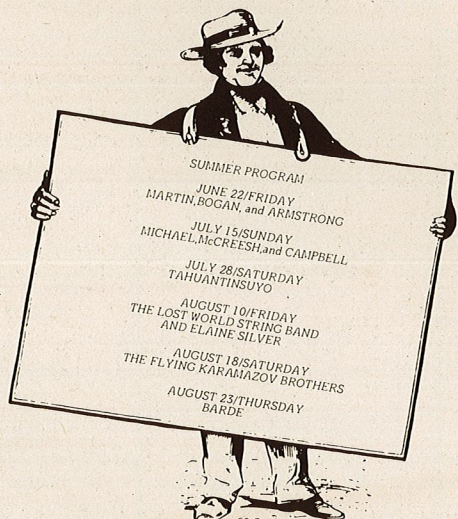 SUMMER PROGRAM
JUNE 22/FRIDAY
MARTIN,BOGAN, and ARMSTRONG
JULY 15/SUNDAY
MICHAEL,McCREESH,and CAMPBELL
JULY 28/SATURDAY
TAHUANTINSUYO
AUGUST 10/FRIDAY
THE LOST WORLD STRING BAND
AND ELAINE SILVER
AUGUST 18/SATURDAY
THE FLYING KARAMAZOV BROTHERS
AUGUST 23/THURSDAY
BARDE